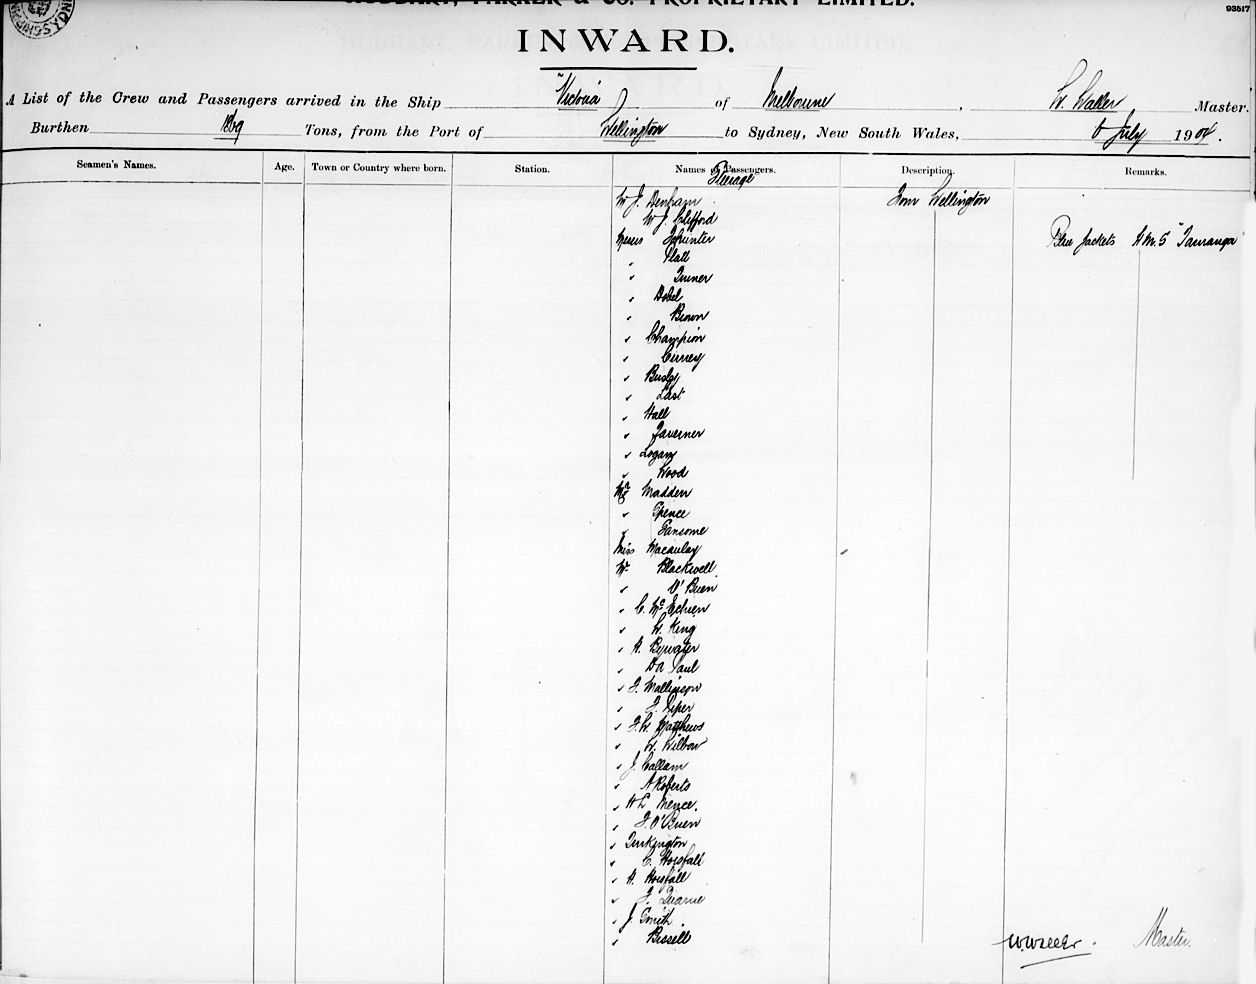 HUDDART, PARKER & CO. PROPRIETARY LIMITED.
93517
INWARD.
A List of the Crew and Passengers arrived in the Ship "Victoria" of Melbourne. W. Waller Master.
Burthen Tons, from the Port of Wellington to Sydney, New South Wales, 6 July 1904.
Seamen's Names. Age. Town or Country where born. Station. Names of Passengers. Description. Remarks.
Steerage
W J. Denham from Wellington
W J. Clifford
Messrs Blue Jackets H.M.S "Tauranga"
" Hall
" Turner
" Dobel
" Brown
" Champion
"
"
" Last
" Hall
" Taverner
" Logan
" Wood
Madden
" Spence
" Ransome
Miss Macaulay
Mr Blackwell
" O'Brien
" C.
" W. King
" A. Bywater
" Paul
" F. Mallinson
" F. Piper
" F. W. Matthews
" W.
" J. Callam
" A Roberts
" H E Mence.
" F. O'Brien
"
" C. Horsfall
" A. Horsfall
" F.
" J. Smith
" Bissell
W Waller. Master.